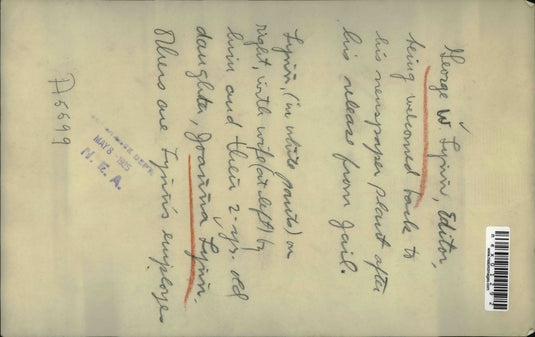 George W. Lynn, Editor,
being welcomed back to
his newspaper plant after
his release from jail.
Lynn, (in white pants) on
right, with wife (at left) by
him and their 2-yr. old
daughter, Joanna Lynn.
Others are Lynn's employes
MAY 8 1925
N. E. A.
A5699